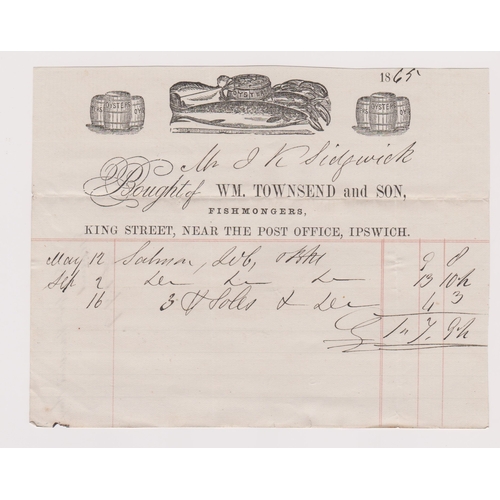 1865
OYSTERS OYSTERS OYSTERS
Mr J K Sidgwick
Bought of WM. TOWNSEND and SON,
FISHMONGERS,
KING STREET, NEAR THE POST OFFICE, IPSWICH.
May 12 Salmon, 9 8
Sep 2 Do Do Do 13 10½
16 3 Soles & Do 4 3
1 7 9½